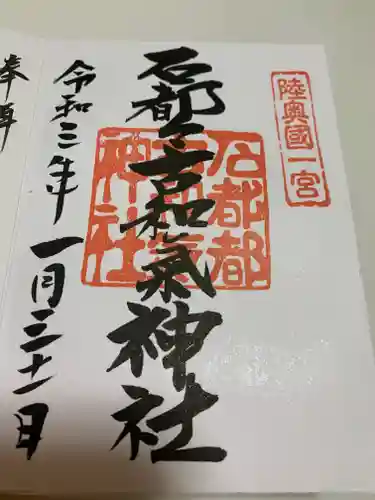 陸奥國一宮
石都々古和氣神社
石都都
古和氣
神社
令和三年一月三十一日
奉拜